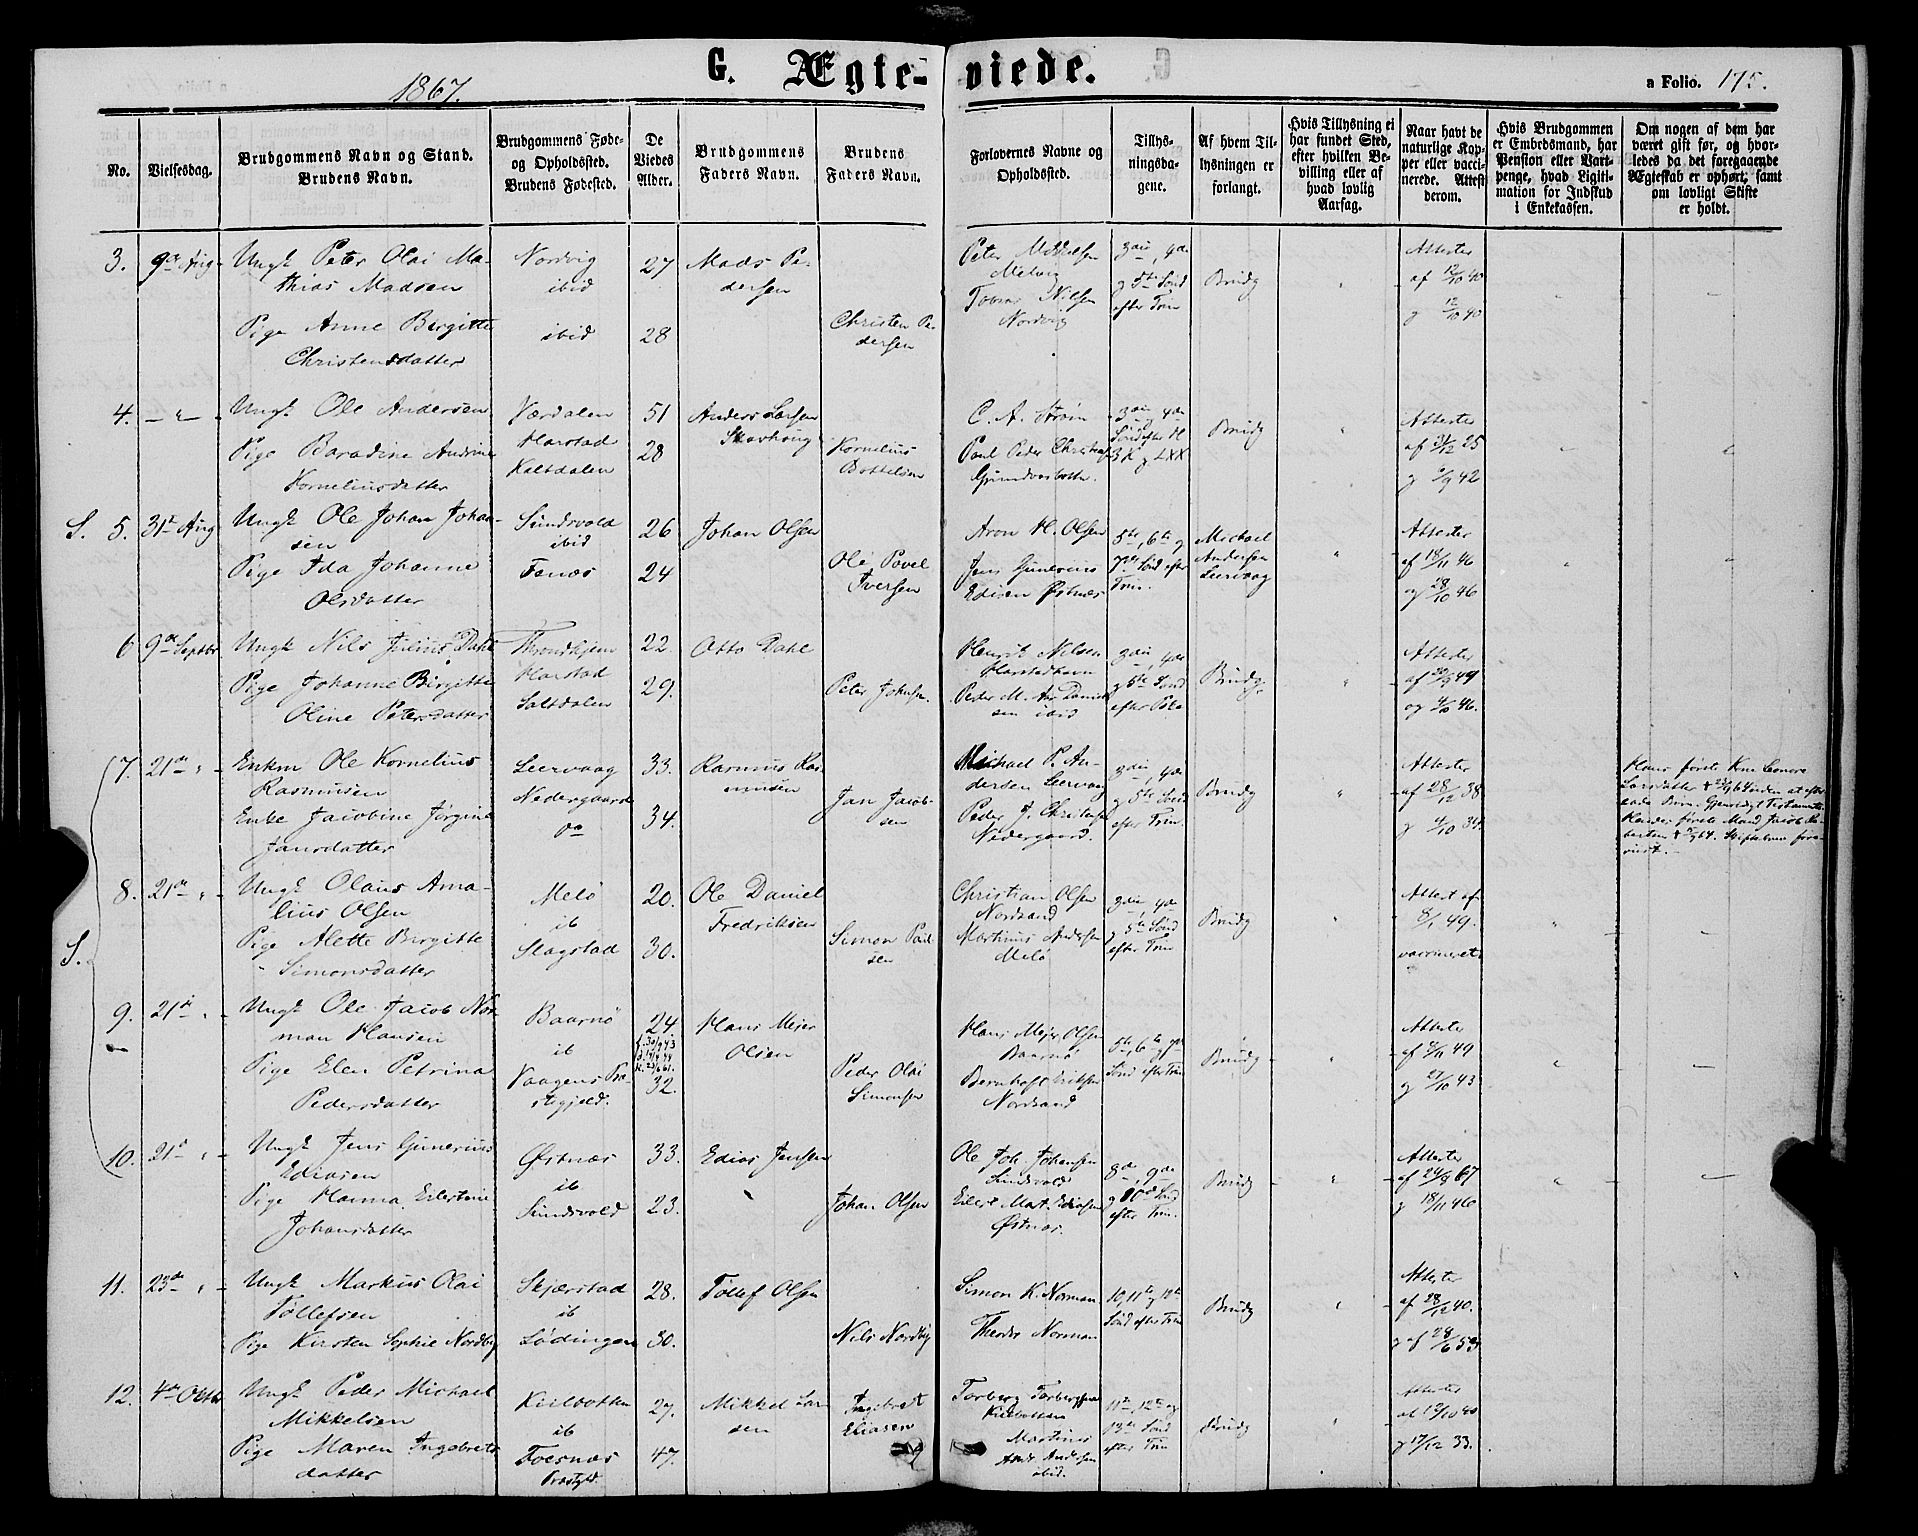 1867.
G. Ægte-viede.
a Folio. 175.
No.
Vielsesdag.
Brudgommens Navn og Stand.
Brudens Navn.
Brudgommens Føde-
og Opholdssted.
Brudens Fødested.
De
Viedes
Alder.
Brudgommens
Faders Navn.
Brudens
Faders Navn.
Forlovernes Navne og
Opholdssted.
Tillys-
ningsda-
gene.
Af hvem Til-
lysningen er
forlangt.
Hvis Tillysning ei
har fundet Sted,
efter hvilken Be-
villing eller af
hvad lovlig
Aarsag.
Naar havt de
naturlige Kop-
per eller vacci-
nerede. Attest
derom.
Hvis Brudgommen
er Embedsmand, har
Pension eller Vart-
penge, hvad Ligiti-
mation for Indskud
i Enkekassen.
Om nogen af dem har
været gift før, og hvor-
ledes da det foregaaende
Ægteskab er ophørt, samt
om lovligt Skifte
er holdt.
3. 9de Aug
Ungk Peter Olai Ma-
thias Madsen
Pige Anne Birgitte
Christensdatter
Nordvig
ibid
ibid
27
28
Mads Pe-
dersen
Christen Pe-
dersen
Peter Mikkelsen
Melvig
Tobias Nilsen
Nordvig
3die, 4de
og 5te Sønd
efter Trin
Brudg
Attester
af 12/10 40
og 12/10 40
4. — " —
Ungk Ole Andersen
Pige Baradine Andrine
Korneliusdatter
Værdalen
Harstad
Kaldalen
51
28
Anders Larsen
Skavhoug
Kornelius
Bottelsen
C. A. Strøm
Paul Peder Christens
3die, 4de
Brudg
Attester
af 31/12 25
og /9 42
S. 5. 31te Aug
Ungk Ole Johan Johan-
sen
Pige Ida Johanne
Olsdatter
Sundsvold
ibid
Fenæs
26
24
Johan Olsen
Ole Povel
Iversen
Aron H. Olsen
Jens Gunerius
Edisen Østnæs
5te, 6te og
7de Sønd efter
Trin.
Michael
Andersen
Leervaag
Attester
af 18/11 46
og 28/10 46
6 9de Septbr
Ungk Nils Julius Dahl
Pige Johanne Birgitte
Oline Petersdatter
Throndhjem
Harstad
Saltdalen
22.
29.
Otto Dahl
Peter Johns.
Henrik Nilsen
Harstadhavn
ibid
3die, 4de
og 5te Sønd
Brudg.
Attester
af /9 49
og 4/10 46.
7. 21de " -
Enkm Ole Kornelius
Rasmusen
Enke Jacobine Jørgine
Jansdatter
Leervaag
Nedergaard
do
33.
34.
Rasmus Ras-
musen
Jan Jacob-
sen
Michael P. An-
dersen Leervaag
Peder J. Christens
Nedergaard.
3die, 4de
og 5te Sønd
efter Trin.
Brudg
Attester
af 28/12 38
og 4/10 34.
Hans første Kone Lenore
Hendes første Mand Jacob Ro-
8. 21de " -
Ungk Olaus Ama-
lius Olsen
Pige Alette Birgitte
Simonsdatter
Melø
ib
Slagstad
20.
30.
Ole Daniel
Fredriksen
Simon Paul-
sen
Christian Olsen
Nordsand
Martinus Andersen
Melø
3die, 4de
og 5te Sønd
efter Trin
Brudg
Attest af
8/1 49.
vaccineret
S.
9. 21de " -
Ungk Ole Jacob Nor-
man Hansen
Pige Elen Petrina
Pedersdatter
Baarnø
ib
Vaagens Præ-
stegjeld.
24.
32.
Hans Mejer
Olsen
Peder Olai
Simonsen
Hans Mejer Olsen
Baarnø
Bernhoft Eriksen
Nordsand
5te, 6te og 7de
Sønd efter Trin
Brudg
Attester
af 8/11 49
og 21/10 43.
10. 21de " -
Ungk Jens Gunerius
Ediasen
Pige Hanna Eilertine
Johansdatter
Østnæs
ib
Sundsvold
33.
23.
Edias Jensen
Johan Olsen
Ole Joh. Johansen
Sundsvold
Eilert Mart. Ediasen
Østnæs
8de, 9de
og 10de Sønd
efter Trin.
Brudg
Attester
af 24/8 67
og 18/11 46
11. 23de " -
Ungk Markus Olai
Tollefsen
Pige Kirsten Sophie Nordby
Skjærstad
ib
Lødingen
28.
30.
Tollef Olsen
Nils Nordby
Simon K. Norman
Theodor Norman
10, 11te og 12te
Sønd efter Trin
Brudg
Attester
af 28/12 40.
og af 28/6 53
12. 4de Octbr
Ungk Peder Michael
Mikkelsen
Pige Maren Ingebrets
datter
Kielbotten
ib
Foesnæs
Præstgjld.
27.
47.
Mikkel Lar-
sen
Ingebret
Eliasen
Torberg Torbergsen
Kielbotten
Martinus
Andr. Andersen
ibid.
11te, 12te og
13de Sønd
efter Trin
Brudg
Attester
af 12/10 40
og 17/12 33.